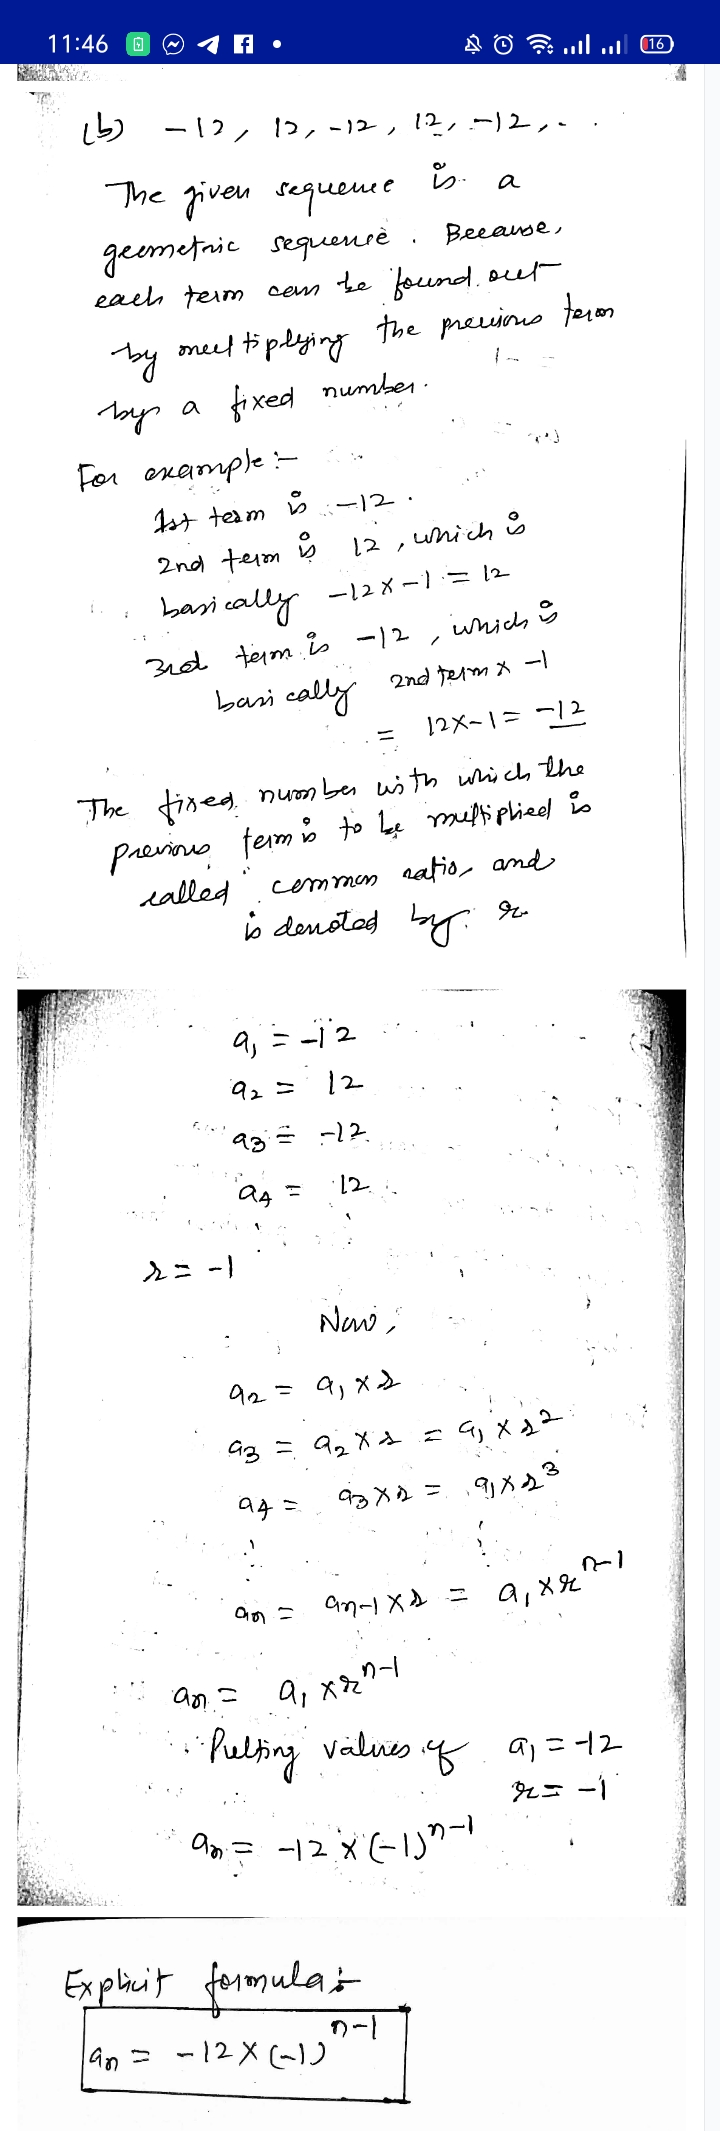 11:46
16
(b) -12, 12, -12, 12, -12, ...
The given sequence is a
geometric sequence. Because,
each term can be found out
by multiplying the previous term
by a fixed number.
For example :-
1st term is -12.
2nd term is 12, which is
basically -12 x -1 = 12
3rd term is -12, which is
basically 2nd term x -1
= 12x-1 = -12
The fixed number with which the
previous term is to be multiplied is
called common ratio, and
is denoted by r
a₁ = -12
a₂ = 12
a₃ = -12
a₄ = 12
r = -1
Now,
a₂ = a₁ x r
a₃ = a₂ x r = a₁ x r²
a₄ = a₃ x r = a₁ x r³
aₙ = aₙ₋₁ x r = a₁ x rⁿ⁻¹
aₙ = a₁ x rⁿ⁻¹
Putting values of a₁ = -12
r = -1
aₙ = -12 x (-1)ⁿ⁻¹
Explicit formula :-
aₙ = -12 x (-1)ⁿ⁻¹